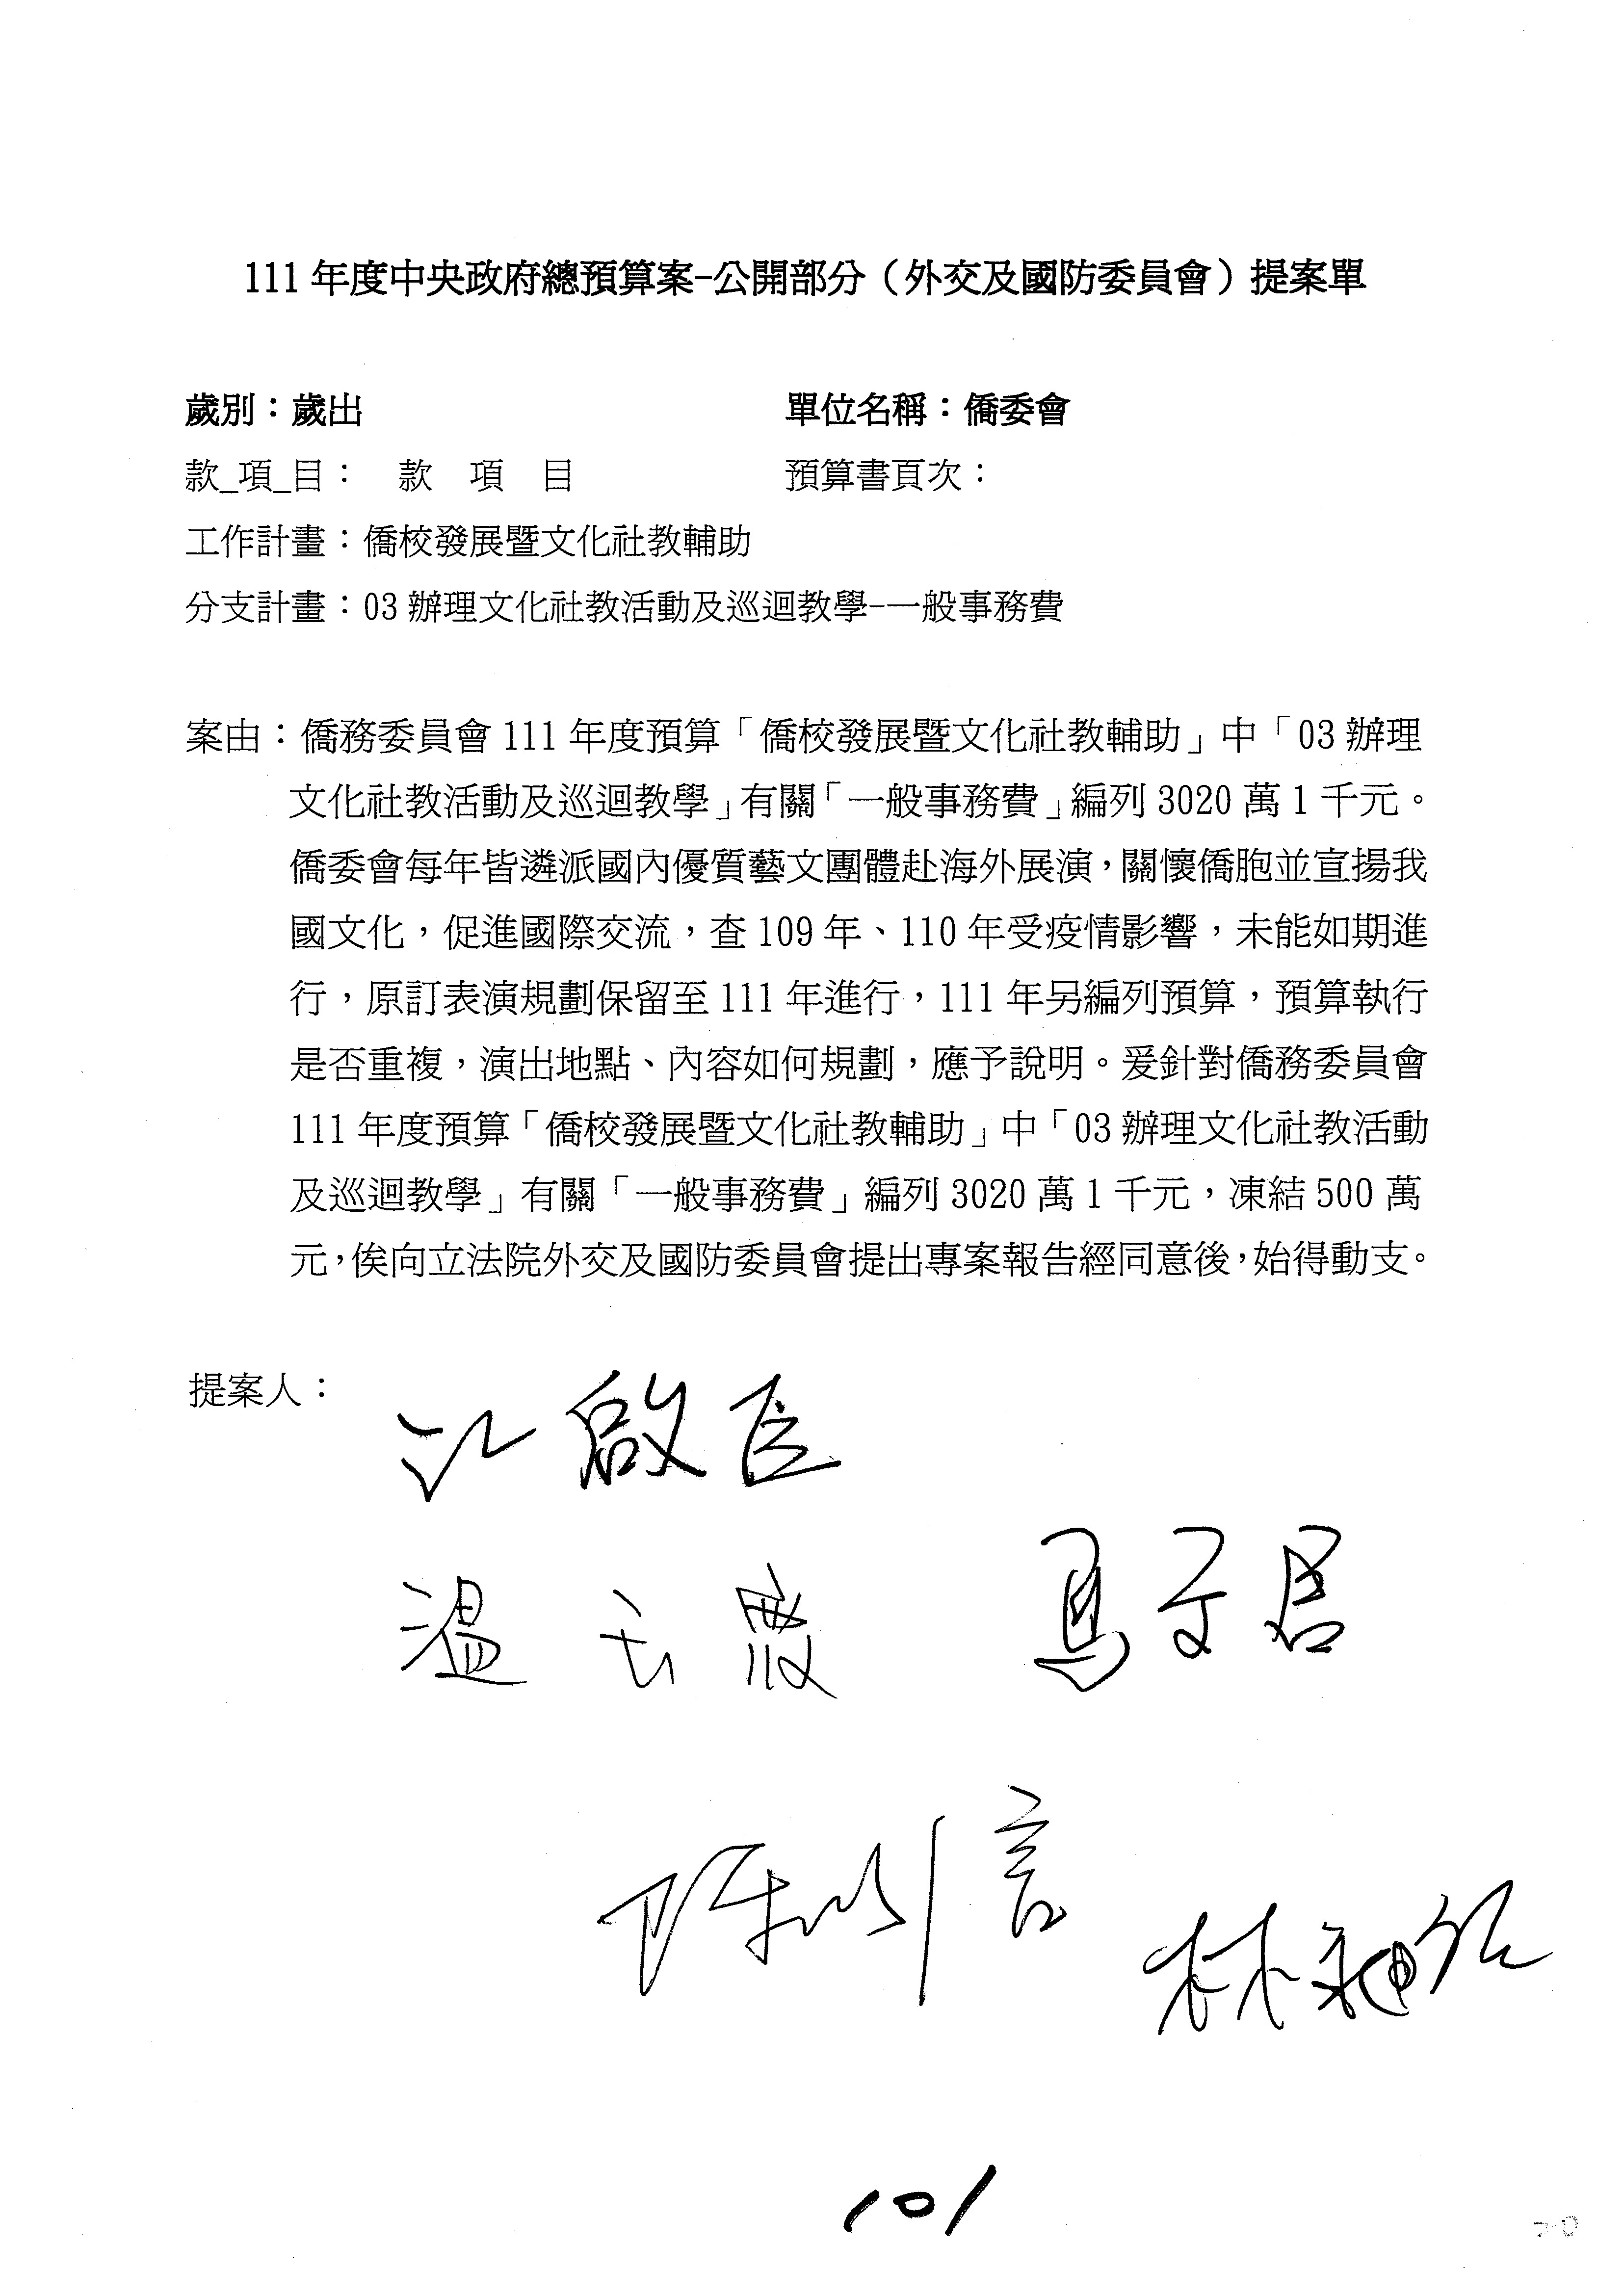 111 年度中央政府總預算案-公開部分（外交及國防委員會）提案單
歲別：歲出 單位名稱：僑委會
款_項_目： 款 項 目 預算書頁次：
工作計畫：僑校發展暨文化社教輔助
分支計畫：03 辦理文化社教活動及巡迴教學-一般事務費
案由：僑務委員會 111 年度預算「僑校發展暨文化社教輔助」中「03 辦理
文化社教活動及巡迴教學」有關「一般事務費」編列 3020 萬 1 千元。
僑委會每年皆遴派國內優質藝文團體赴海外展演，關懷僑胞並宣揚我
國文化，促進國際交流，查 109 年、110 年受疫情影響，未能如期進
行，原訂表演規劃保留至 111 年進行，111 年另編列預算，預算執行
是否重複，演出地點、內容如何規劃，應予說明。爰針對僑務委員會
111 年度預算「僑校發展暨文化社教輔助」中「03 辦理文化社教活動
及巡迴教學」有關「一般事務費」編列 3020 萬 1 千元，凍結 500 萬
元，俟向立法院外交及國防委員會提出專案報告經同意後，始得動支。
提案人：
江啟臣
溫玉霞 馬文君
陳以信
101
20